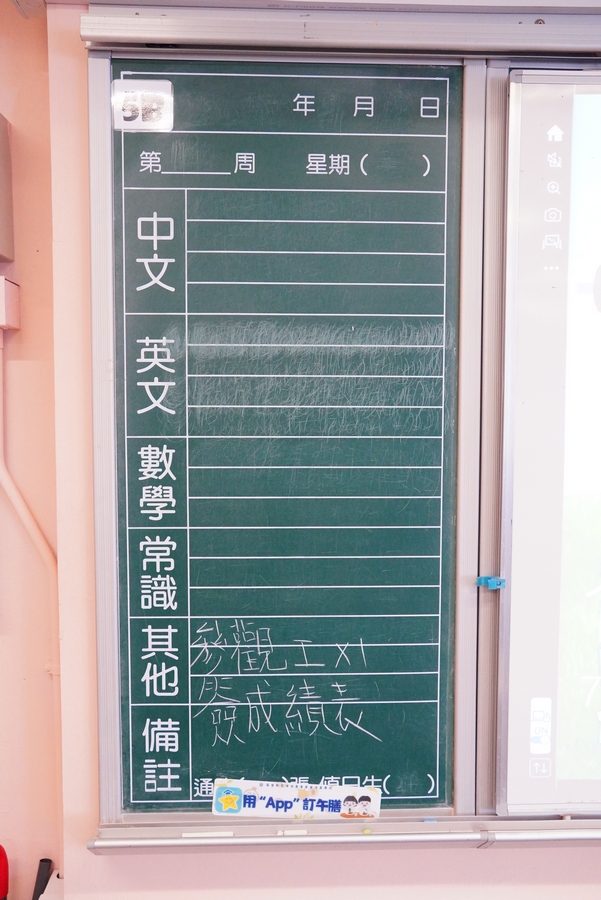 5B
年 月 日
第______周 星期( )
中文
英文
數學
常識
其他
參觀工 x1
成績表
備註
通 ( )張 值日生( )
用“App”訂午膳